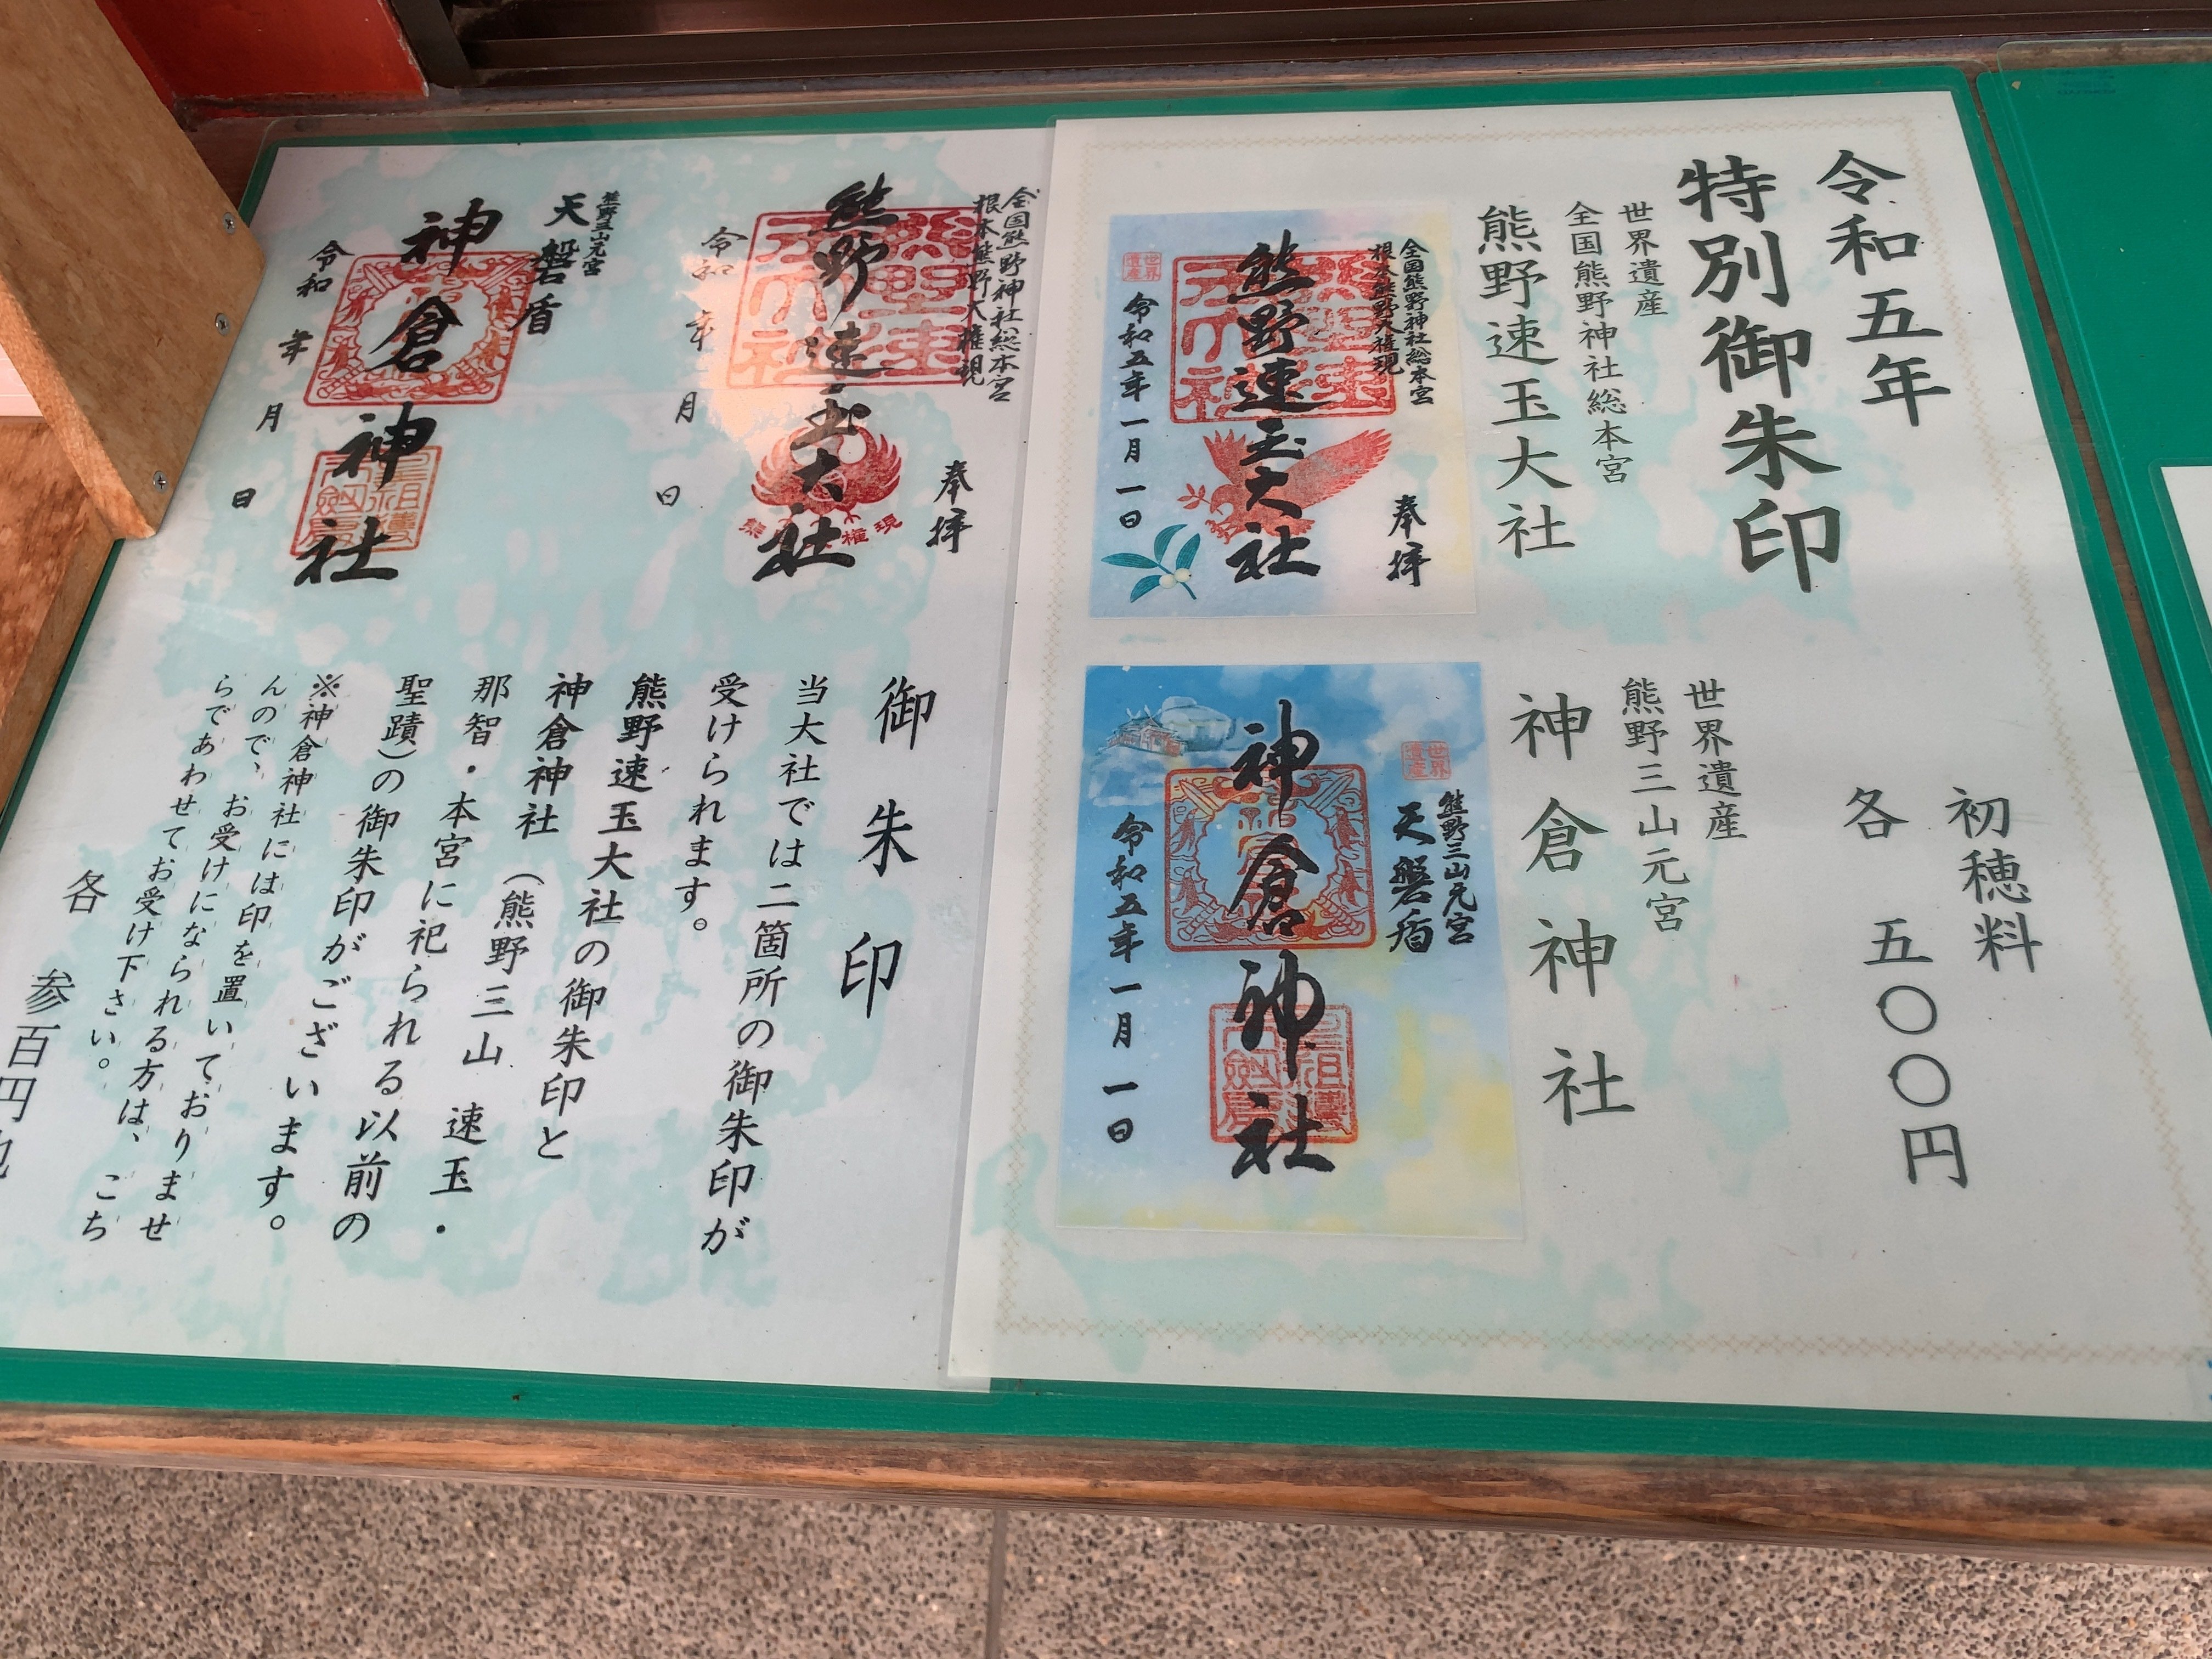 令和五年
特別御朱印
世界遺産
全国熊野神社総本宮
熊野速玉大社
全国熊野神社総本宮
根本熊野大権現
奉拝
熊野速玉大社
世界
遺産
令和五年一月一日
初穂料
各 五〇〇円
世界遺産
熊野三山元宮
神倉神社
世界
遺産
熊野三山元宮
天磐盾
神倉神社
令和五年一月一日
全国熊野神社総本宮
根本熊野大権現
奉拝
熊野速玉大社
令和 年 月 日
熊野三山元宮
天磐盾
神倉神社
令和 年 月 日
御朱印
当大社では二箇所の御朱印が
受けられます。
熊野速玉大社の御朱印と
神倉神社(熊野三山 速玉・
那智・本宮に祀られる以前の
聖蹟)の御朱印がございます。
※神倉神社には印を置いておりませ
んので、お受けになられる方は、こち
らであわせてお受け下さい。
各 参百円也